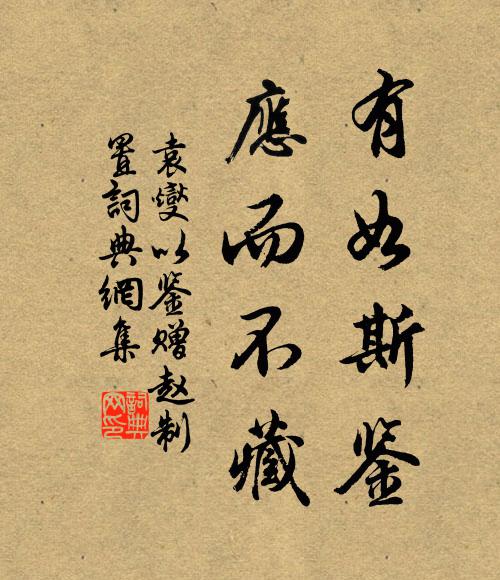 有如斯鉴
應而不藏
袁燮以鉴赠赵制
置詞典網集
詞典
网印